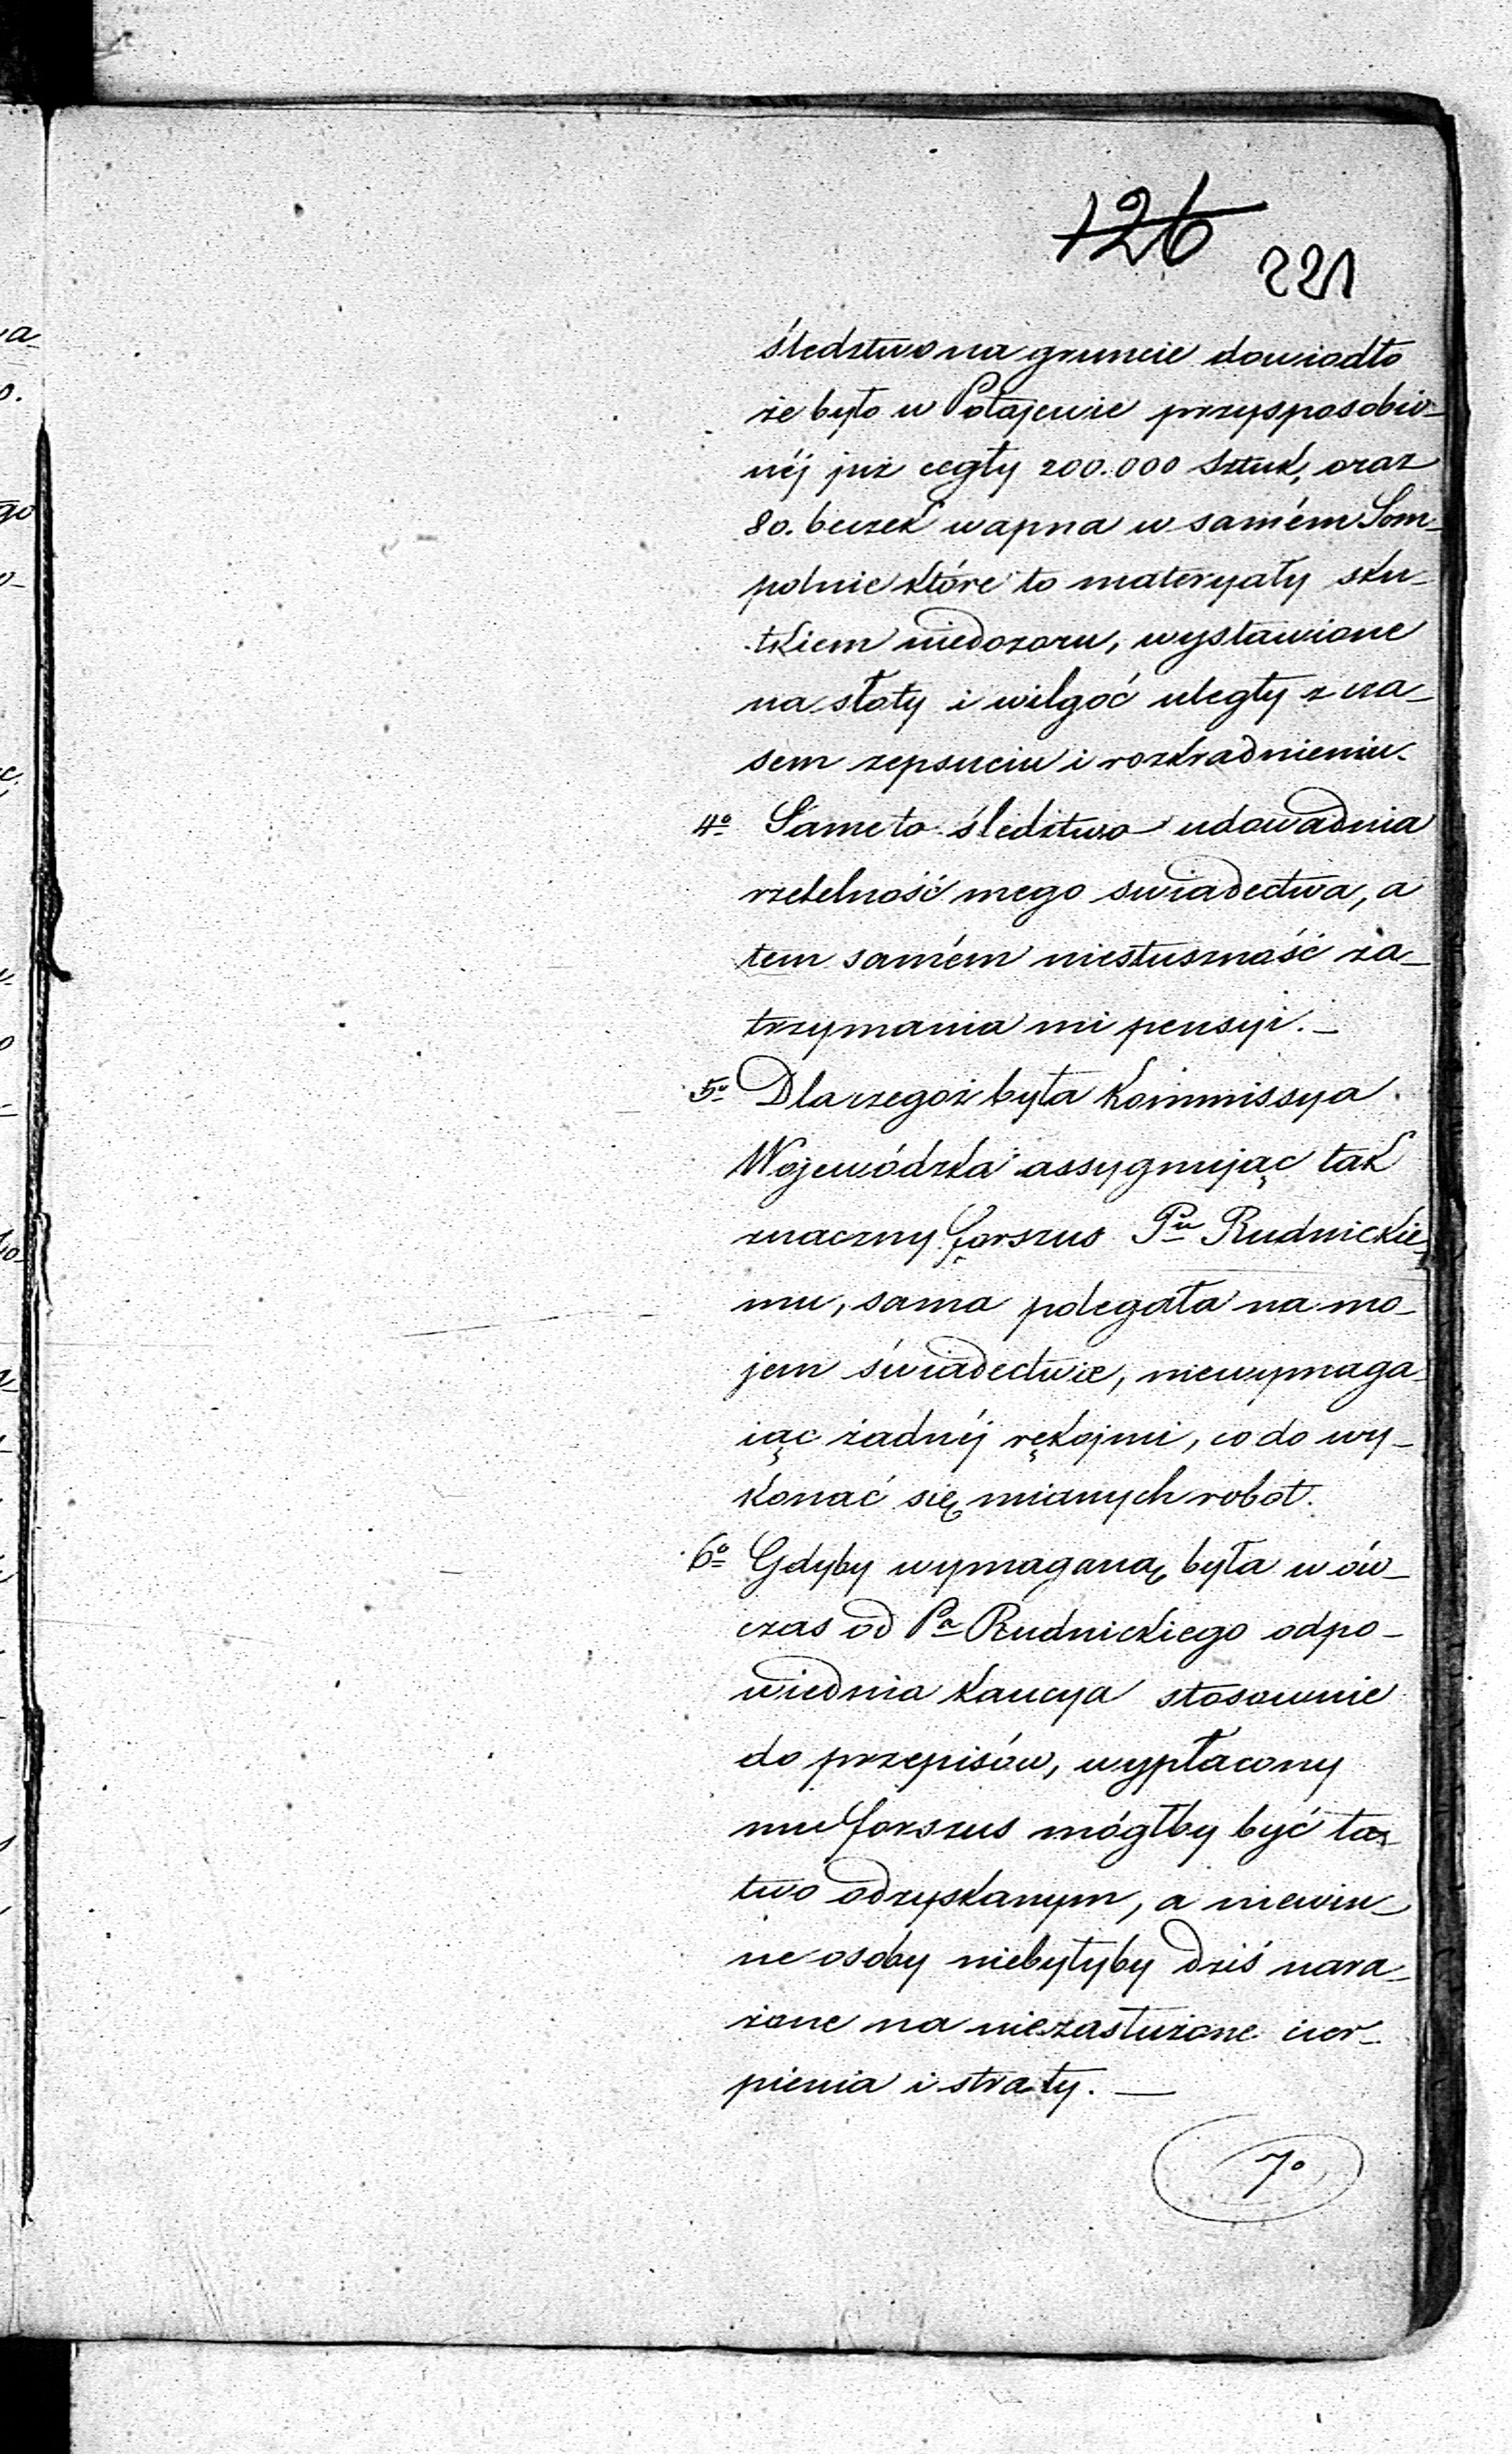 126
221
śledztwo na gruncie dowiodło
że było w Połajewie przysposobio-
néj już cegły 200.000 sztuk, oraz
80. beczek wapna w samém Som-
polnie które to materyały sku-
tkiem niedozoru, wystawione
na słoty i wilgoć uległy z cza-
sem zepsuciu i rozkradnieniu.
4o Same to śledztwo udowadnia
rzetelność mego swiadectwa, a
tem samém niesłuszność za-
trzymania mi pensyi. -
5o Dla czegoż była Kommissya
Wojewódzka assygnując tak
znaczny forszus Pu Rudnickie-
mu, sama polegała na mo-
jem świadectwie, niewymaga-
iąc żadnéj rękojmi, co do wy-
konać się mianych robot.
6o Gdyby wymaganą była w ów-
czas od Pa Rudnickiego odpo-
wiednia kaucya stosownie
do przepisów, wypłacony
mu forszus mógłby być ła-
two odzyskanym, a niewin-
ne osoby niebyłyby dziś nara-
żone na niezasłużone cier-
pienia i straty. —
7o